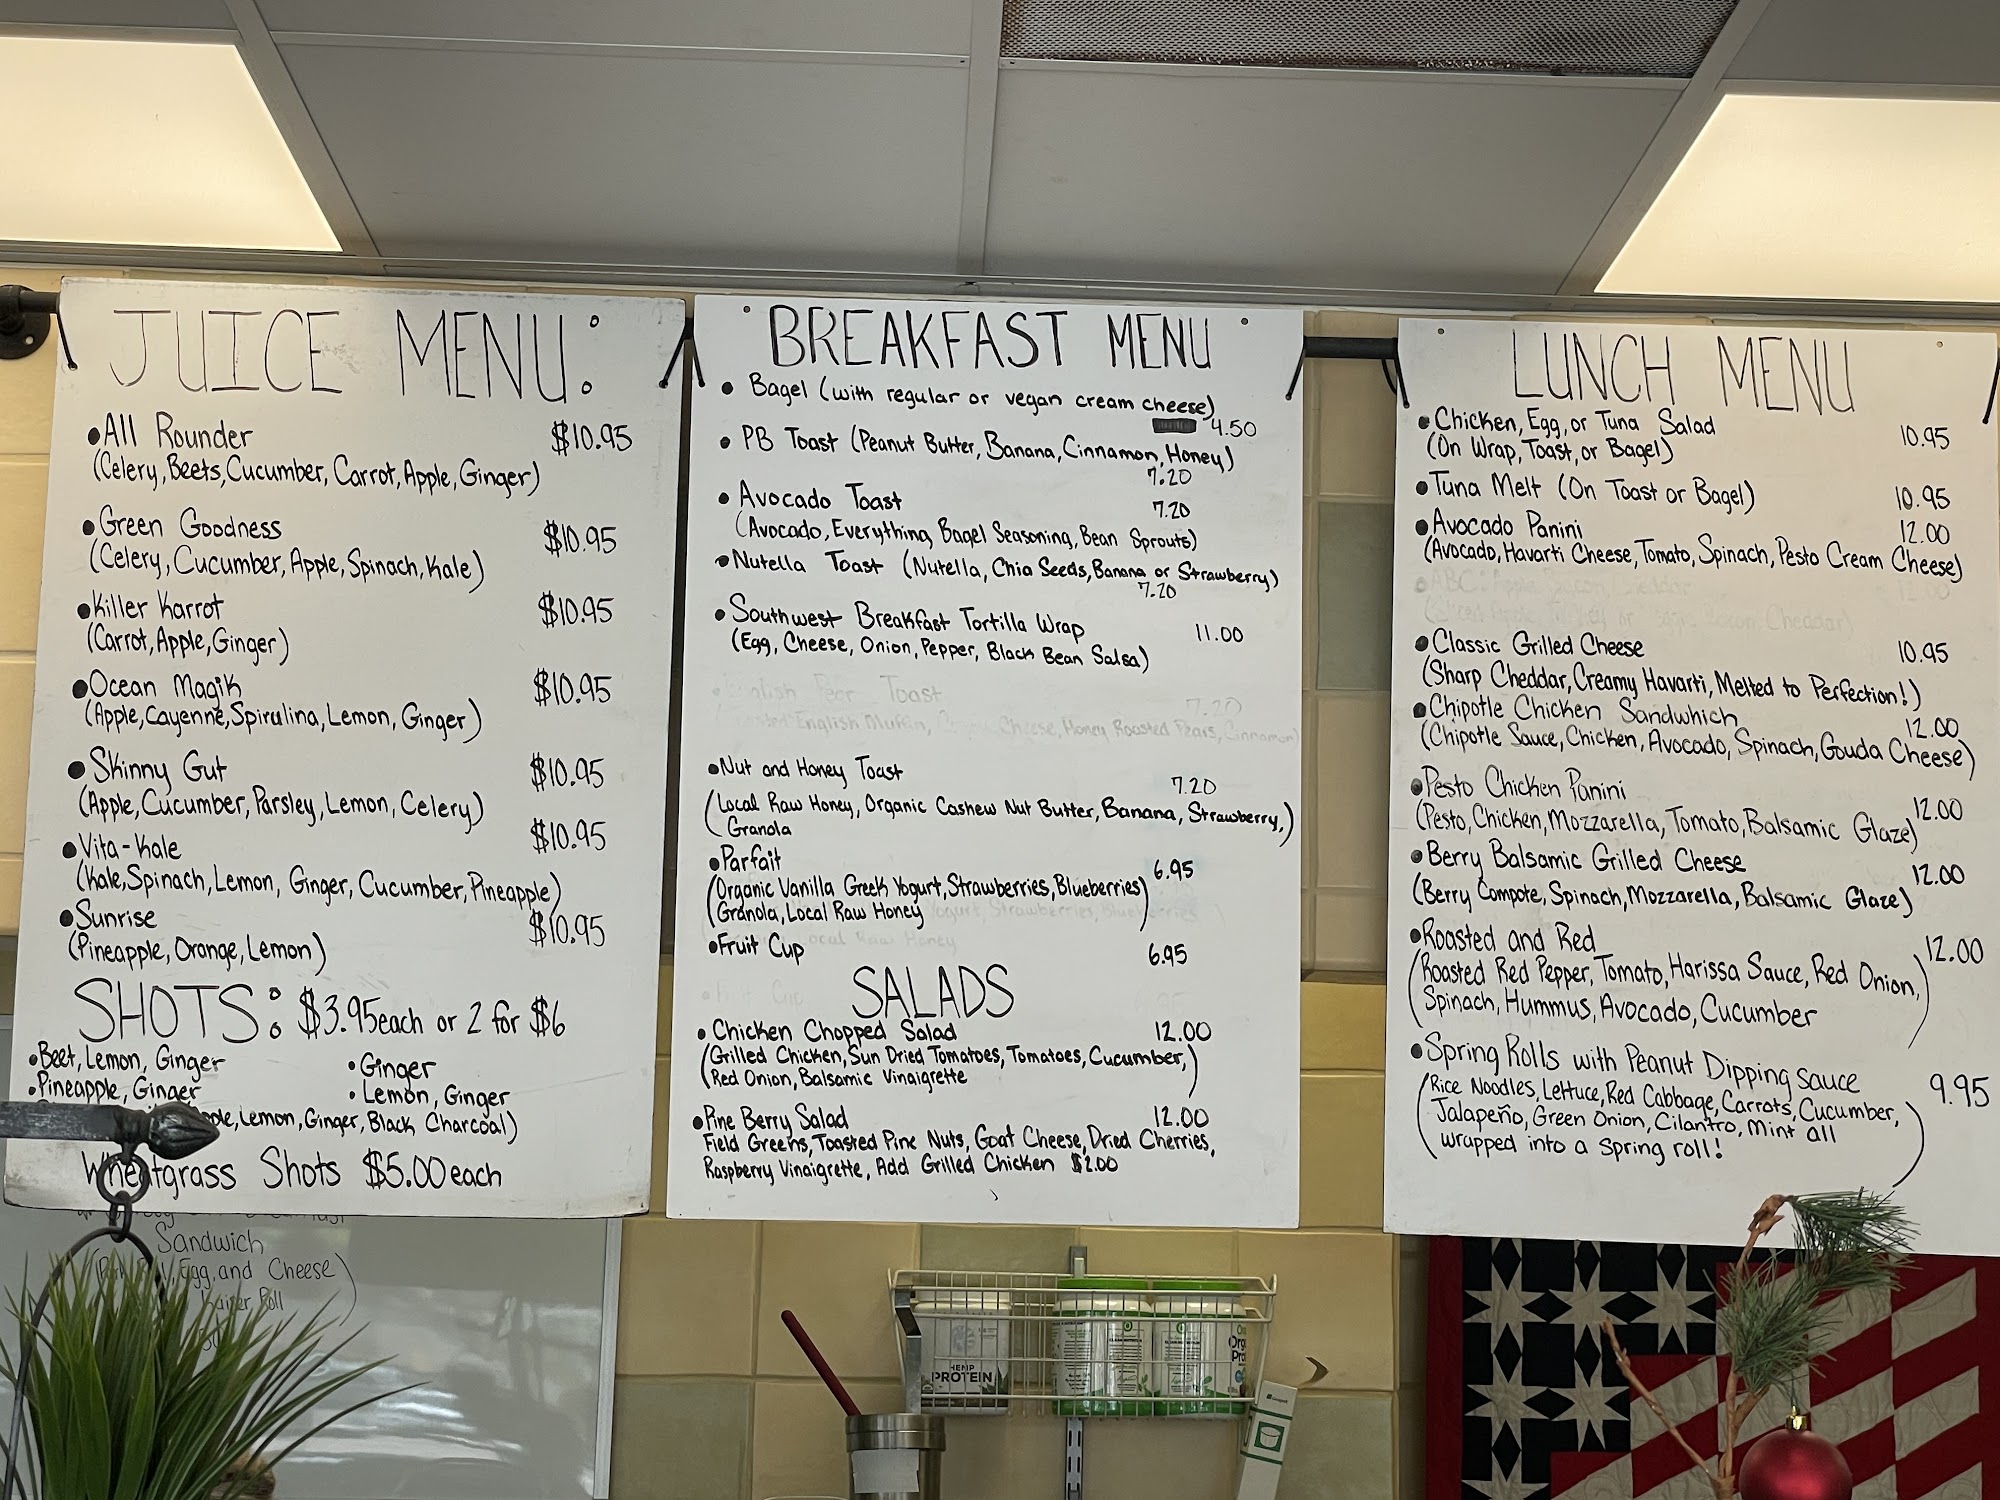 JUICE MENU:
•All Rounder $10.95
(Celery, Beets, Cucumber, Carrot, Apple, Ginger)
•Green Goodness $10.95
(Celery, Cucumber, Apple, Spinach, Kale)
•Killer Karrot $10.95
(Carrot, Apple, Ginger)
•Ocean Magik $10.95
(Apple, Cayenne, Spirulina, Lemon, Ginger)
•Skinny Gut $10.95
(Apple, Cucumber, Parsley, Lemon, Celery)
•Vita-Kale $10.95
(Kale, Spinach, Lemon, Ginger, Cucumber, Pineapple)
•Sunrise $10.95
(Pineapple, Orange, Lemon)
SHOTS: $3.95 each or 2 for $6
•Beet, Lemon, Ginger
•Pineapple, Ginger
•Ginger
•Lemon, Ginger
Lemon, Ginger, Black Charcoal)
Wheatgrass Shots $5.00 each
BREAKFAST MENU
• Bagel (with regular or vegan cream cheese)
4.50
• PB Toast (Peanut Butter, Banana, Cinnamon, Honey)
7.20
• Avocado Toast 7.20
(Avocado, Everything Bagel Seasoning, Bean Sprouts)
•Nutella Toast (Nutella, Chia Seeds, Banana or Strawberry)
7.20
•Southwest Breakfast Tortilla Wrap 11.00
(Egg, Cheese, Onion, Pepper, Black Bean Salsa)
English Pear Toast
7.20
English Muffin, Cheese, Honey Roasted Pears, Cinnamon)
•Nut and Honey Toast 7.20
(Local Raw Honey, Organic Cashew Nut Butter, Banana, Strawberry,
Granola)
•Parfait 6.95
(Organic Vanilla Greek Yogurt, Strawberries, Blueberries
Granola, Local Raw Honey)
Yogurt, Strawberries, Blueberries
Local Raw Honey
•Fruit Cup 6.95
Fruit Cup
SALADS
•Chicken Chopped Salad 12.00
(Grilled Chicken, Sun Dried Tomatoes, Tomatoes, Cucumber,
Red Onion, Balsamic Vinaigrette)
•Pine Berry Salad 12.00
Field Greens, Toasted Pine Nuts, Goat Cheese, Dried Cherries,
Raspberry Vinaigrette, Add Grilled Chicken $2.00
LUNCH MENU
•Chicken, Egg, or Tuna Salad 10.95
(On Wrap, Toast, or Bagel)
•Tuna Melt (On Toast or Bagel) 10.95
•Avocado Panini 12.00
(Avocado, Havarti Cheese, Tomato, Spinach, Pesto Cream Cheese)
•ABC: 12.00
Cheddar)
•Classic Grilled Cheese 10.95
(Sharp Cheddar, Creamy Havarti, Melted to Perfection!)
•Chipotle Chicken Sandwhich 12.00
(Chipotle Sauce, Chicken, Avocado, Spinach, Gouda Cheese)
•Pesto Chicken Panini 12.00
(Pesto, Chicken, Mozzarella, Tomato, Balsamic Glaze)
•Berry Balsamic Grilled Cheese 12.00
(Berry Compote, Spinach, Mozzarella, Balsamic Glaze)
•Roasted and Red 12.00
(Roasted Red Pepper, Tomato, Harissa Sauce, Red Onion,
Spinach, Hummus, Avocado, Cucumber)
•Spring Rolls with Peanut Dipping Sauce 9.95
(Rice Noodles, Lettuce, Red Cabbage, Carrots, Cucumber,
Jalapeño, Green Onion, Cilantro, Mint all
wrapped into a spring roll!)
Sandwich
Egg, and Cheese
Kaiser Roll
HEMP
PROTEIN